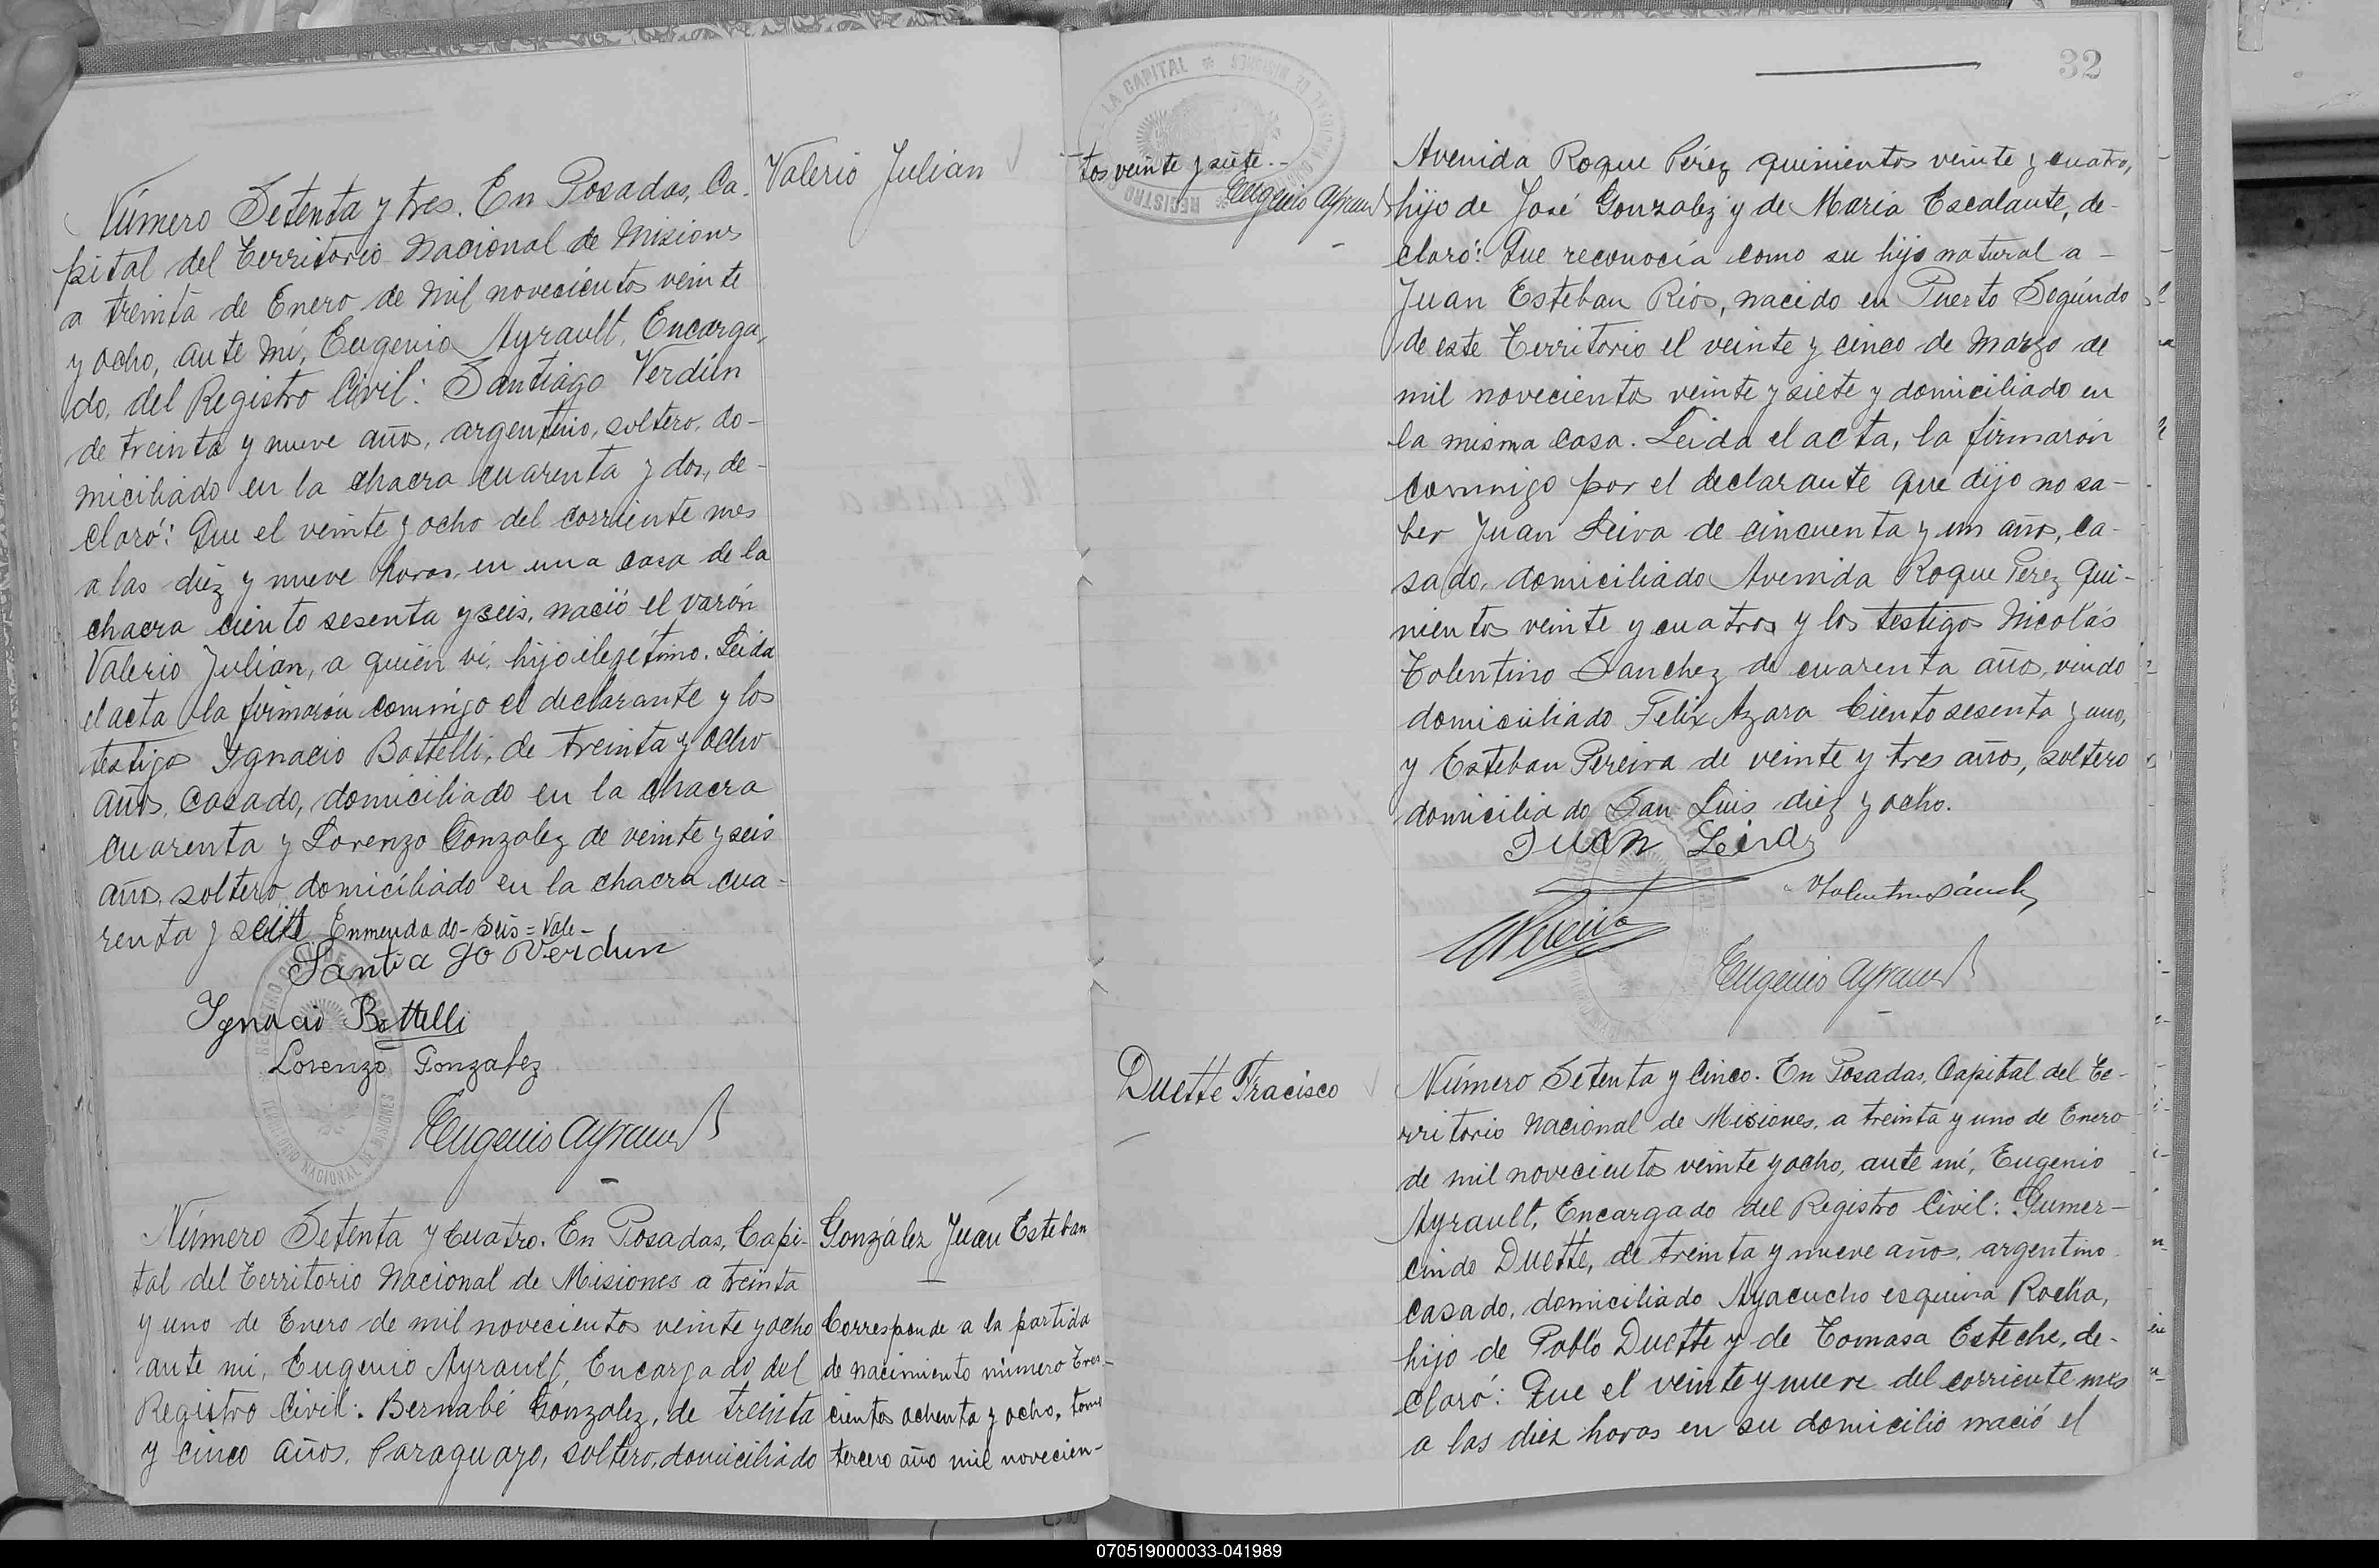 Valerio Julian
Número Setenta y tres. En Posadas, Ca-
pital del Territorio Nacional de Misiones
a treinta de Enero de mil novecientos veinte
y ocho, ante mí, Eugenio Ayrault, Encarga-
do, del Registro Civil: Santiago Verdún
de treinta y nueve años, argentino, soltero, do-
miciliado en la chacra cuarenta y dos, de-
claró: Que el veinte y ocho del corriente mes
a las diez y nueve horas, en una casa de la
chacra ciento sesenta y seis, nació el varón
Valerio Julian, a quien ví, hijo ilegítimo. Leida
el acta la firmaron conmigo el declarante y los
testigos Ignacio Battelli, de treinta y ocho
años, casado, domiciliado en la chacra
cuarenta y Lorenzo Gonzalez de veinte y seis
años, soltero, domiciliado en la chacra cua-
renta y seis Enmendado - seis = Vale -
Santiago Verdun
Ignacio Battelli
Lorenzo Gonzalez
Eugenio Ayrault
REGISTRO CIVIL DE LA CAPITAL
TERRITORIO NACIONAL DE MISIONES
González Juan Esteban
Número Setenta y Cuatro. En Posadas, Capi-
tal del Territorio Nacional de Misiones a treinta
y uno de Enero de mil novecientos veinte y ocho
ante mi, Eugenio Ayrault, Encargado del
Registro Civil: Bernabé González, de treinta
y cinco años, Paraguayo, soltero, domiciliado
Corresponde a la partida
de nacimiento número Tres-
cientos ochenta y ocho, tomo
tercero año mil novecien-
tos veinte y siete.-
Eugenio Ayrault
32
Avenida Roque Pérez quinientos veinte y cuatro,
hijo de José Gonzalez y de María Escalante, de-
claró: Que reconocía como su hijo natural a -
Juan Esteban Ríos, nacido en Puerto Segundo
de este Territorio el veinte y cinco de Marzo de
mil novecientos veinte y siete y domiciliado en
la misma casa. Leida el acta, la firmarón
conmigo por el declarante que dijo no sa-
ber Juan Leiva de cincuenta y un años, ca-
sado, domiciliado Avenida Roque Perez qui-
nientos veinte y cuatro, y los testigos Nicolás
Tolentino Sanchez de cuarenta años, viudo
domiciliado Felix Azara Ciento sesenta y uno,
y Esteban Pereira de veinte y tres años, soltero
domiciliado San Luis diez y ocho.
Juan Leiva
Eugenio Ayrault
Duette Fracisco
Número Setenta y Cinco. En Posadas, Capital del Te-
rritorio Nacional de Misiones, a treinta y uno de Enero
de mil novecientos veinte y ocho, ante mí, Eugenio
Ayrault, Encargado del Registro Civil: Gumer-
cindo Duette, de treinta y nueve años, argentino
casado, domiciliado Ayacucho esquina Rocha,
hijo de Pablo Duette y de Tomasa Esteche, de-
claró: Que el veinte y nueve del corriente mes
a las diez horas en su domicilio nació el
070519000033-041989